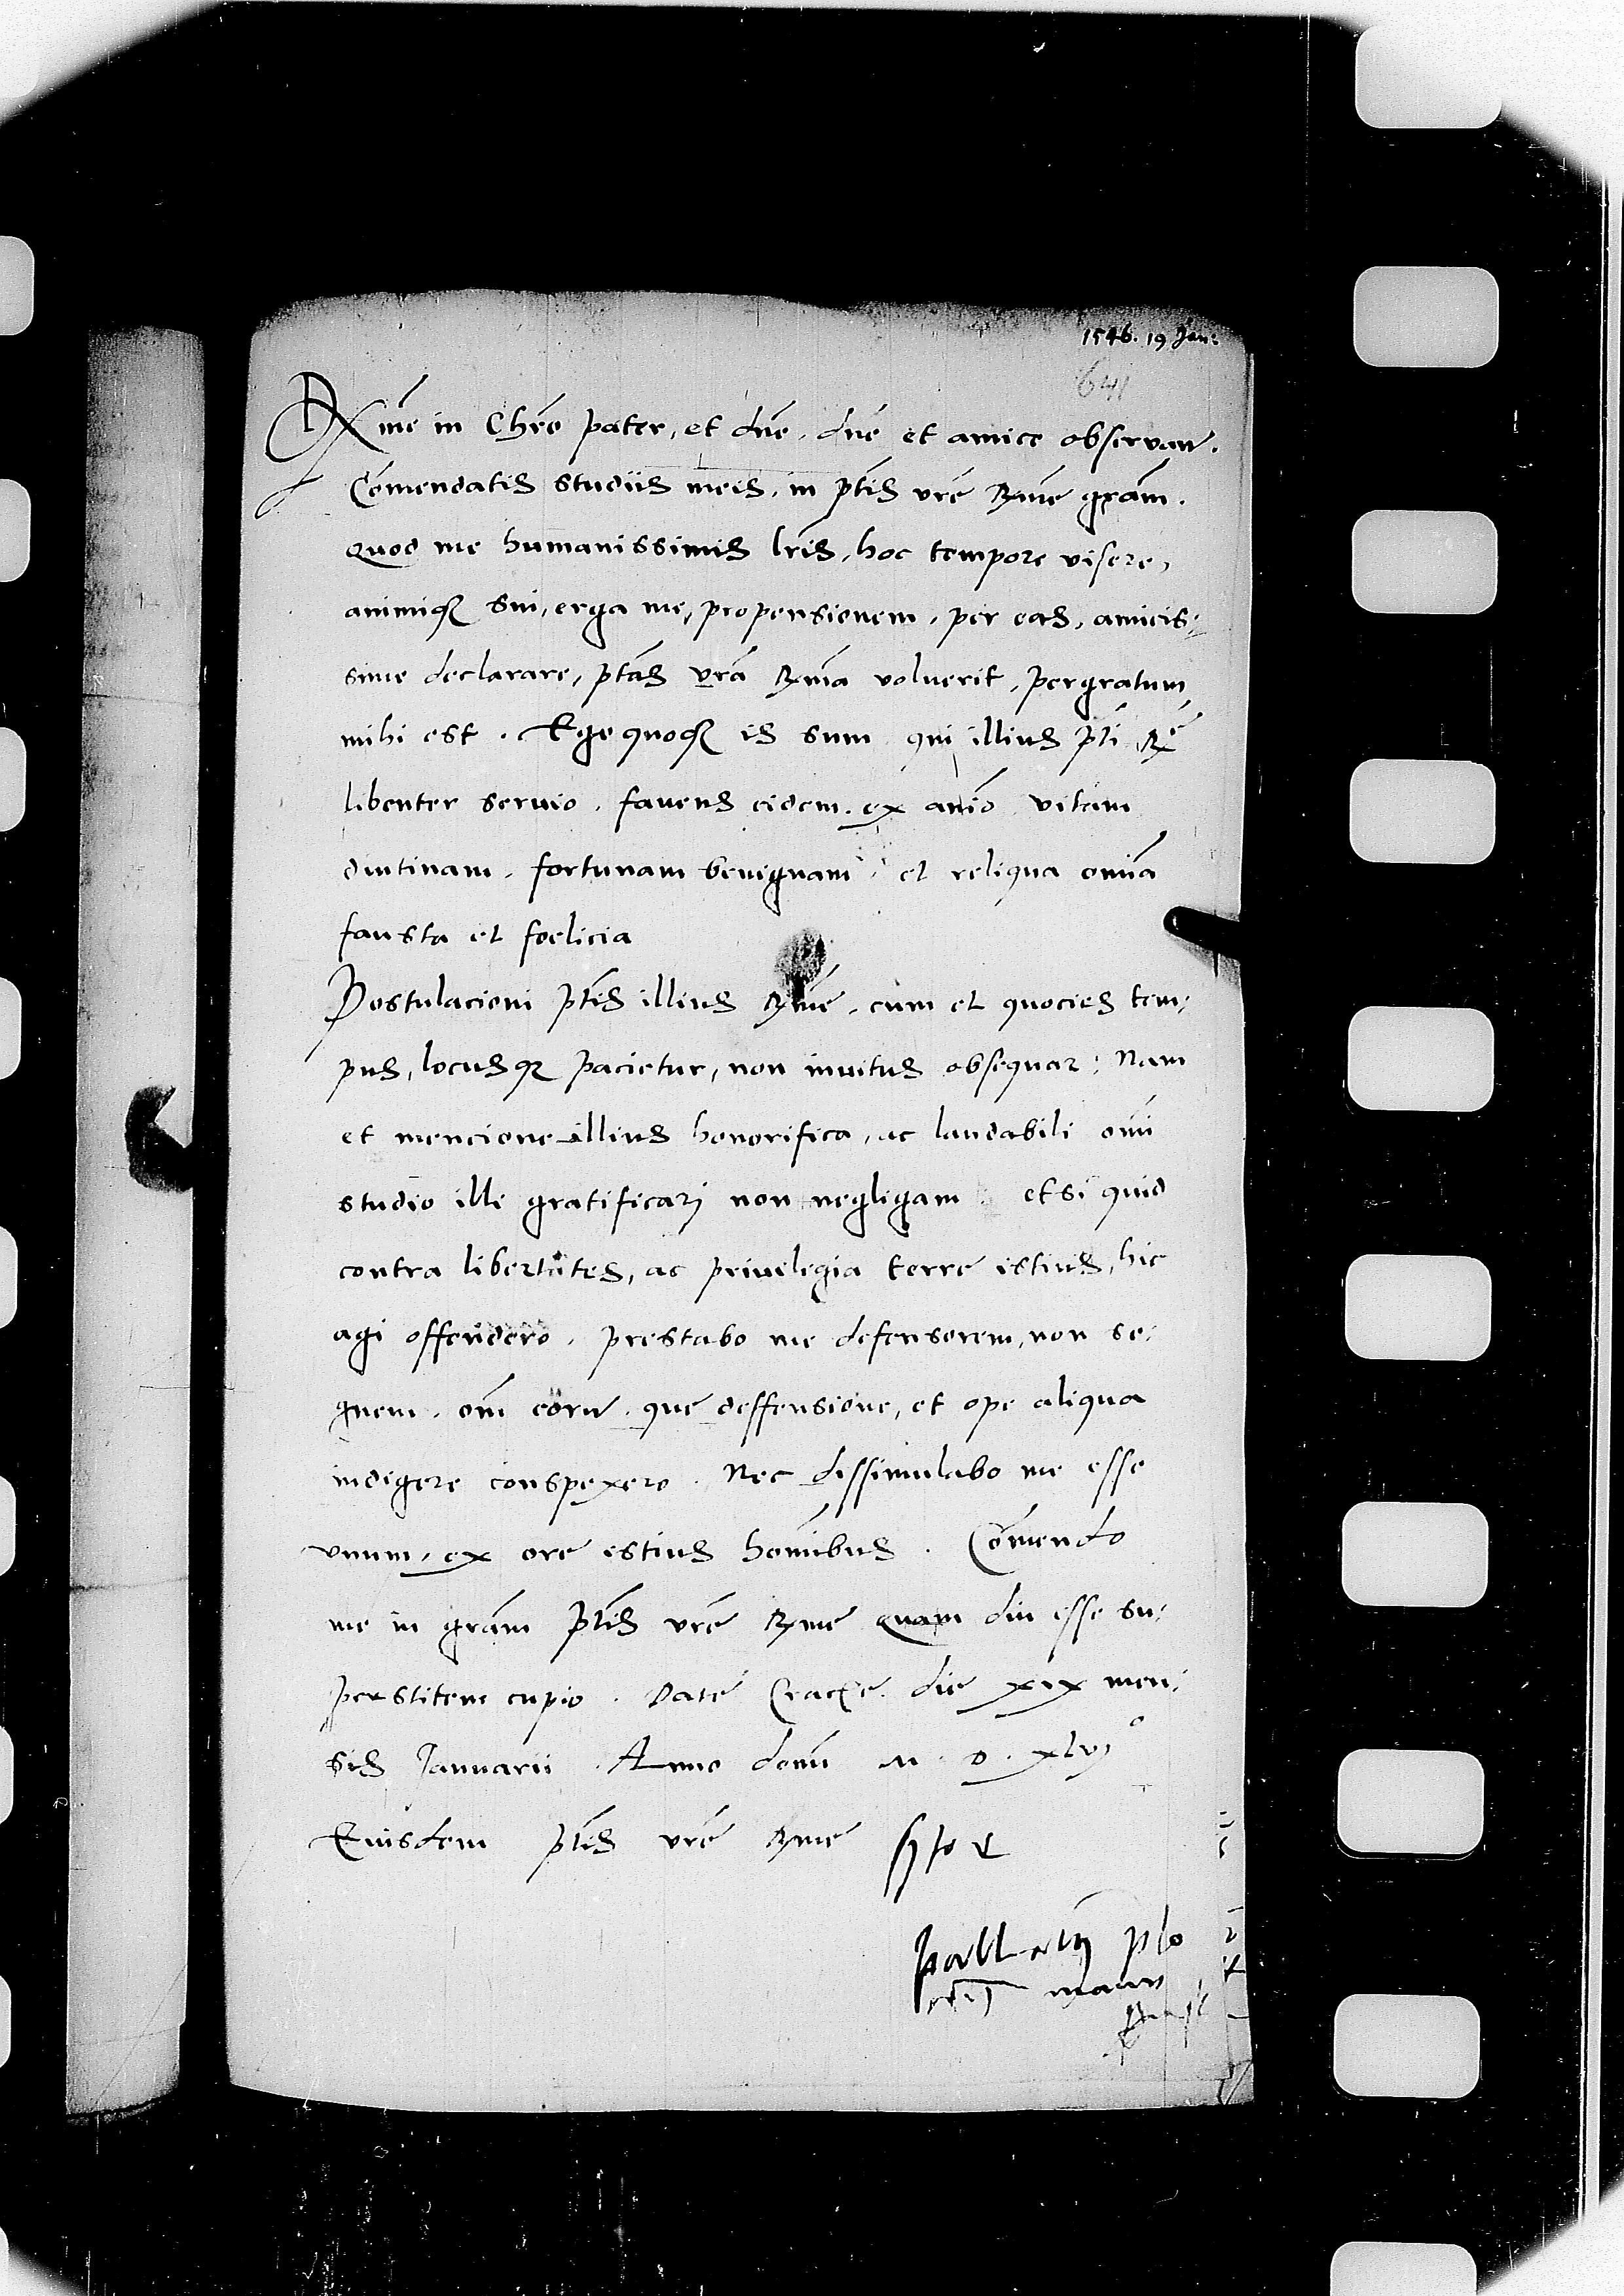 1546. 19 Jan:
641
Rme in Chre pater, et dne, dne et amice observan.
Comendatis studiis meis, in ptis vre Rme gram.
quod me humanissimis lris, hoc tempore visere,
animiq sui, erga me, propensionem, per eas, amicis:
sime declarare, ptas vra Rma voluerit, pergratum
mihi est. Ego quoq is sum qui illius pti Re
libenter servio, favens eidem ex anio vitam
diutinam, fortunam benignam, et reliqua omia
fausta et foelicia
Postulacioni ptis illius Rme, cum et quocies tem:
pus, locusq pacietur, non invitus obsequar: Nam
et mencione illius honorifica, ac laudabili omi
studio illi gratificari non negligam et si quid
contra libertates, ac privilegia terre istius, hic
agi offendero, prestabo me defensorem, non se:
gnem, om eoru, que deffensione, et ope aliqua
indigere conspexero. Nec dissimulabo me esse
unum, ex ore istius homibus. Comendo
me in gram ptis vre Rme quam diu esse su:
perstitem cupio. Date Cracoe die xix men:
sis Januarii. Anno domi M. D. xlvi°
Eiusdem ptis vre Rme
manu